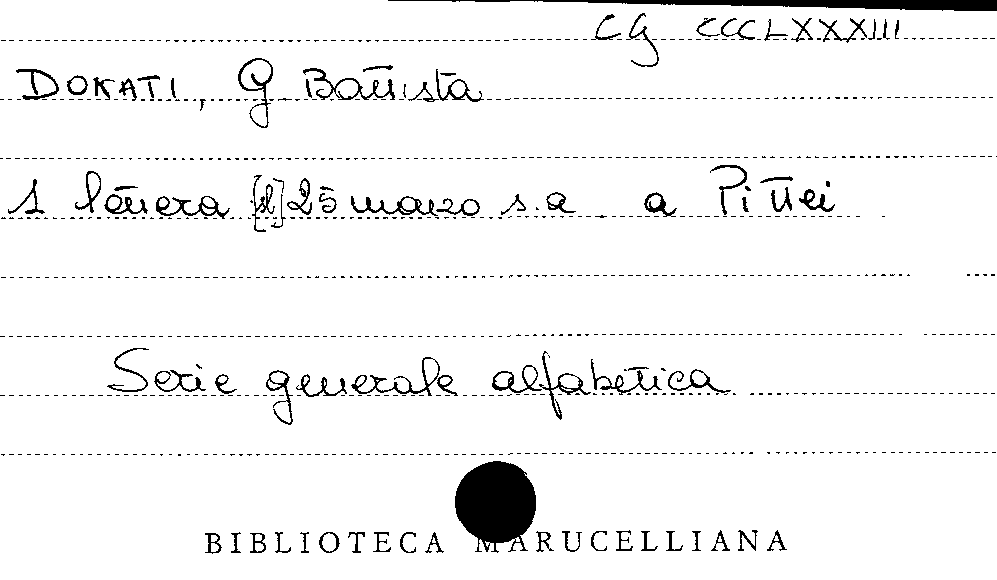 CG CCCLXXXIII
DONATI, G. Battista
1 lettera [d] 25 marzo s.a. a Pittei
Serie generale alfabetica
BIBLIOTECA MARUCELLIANA